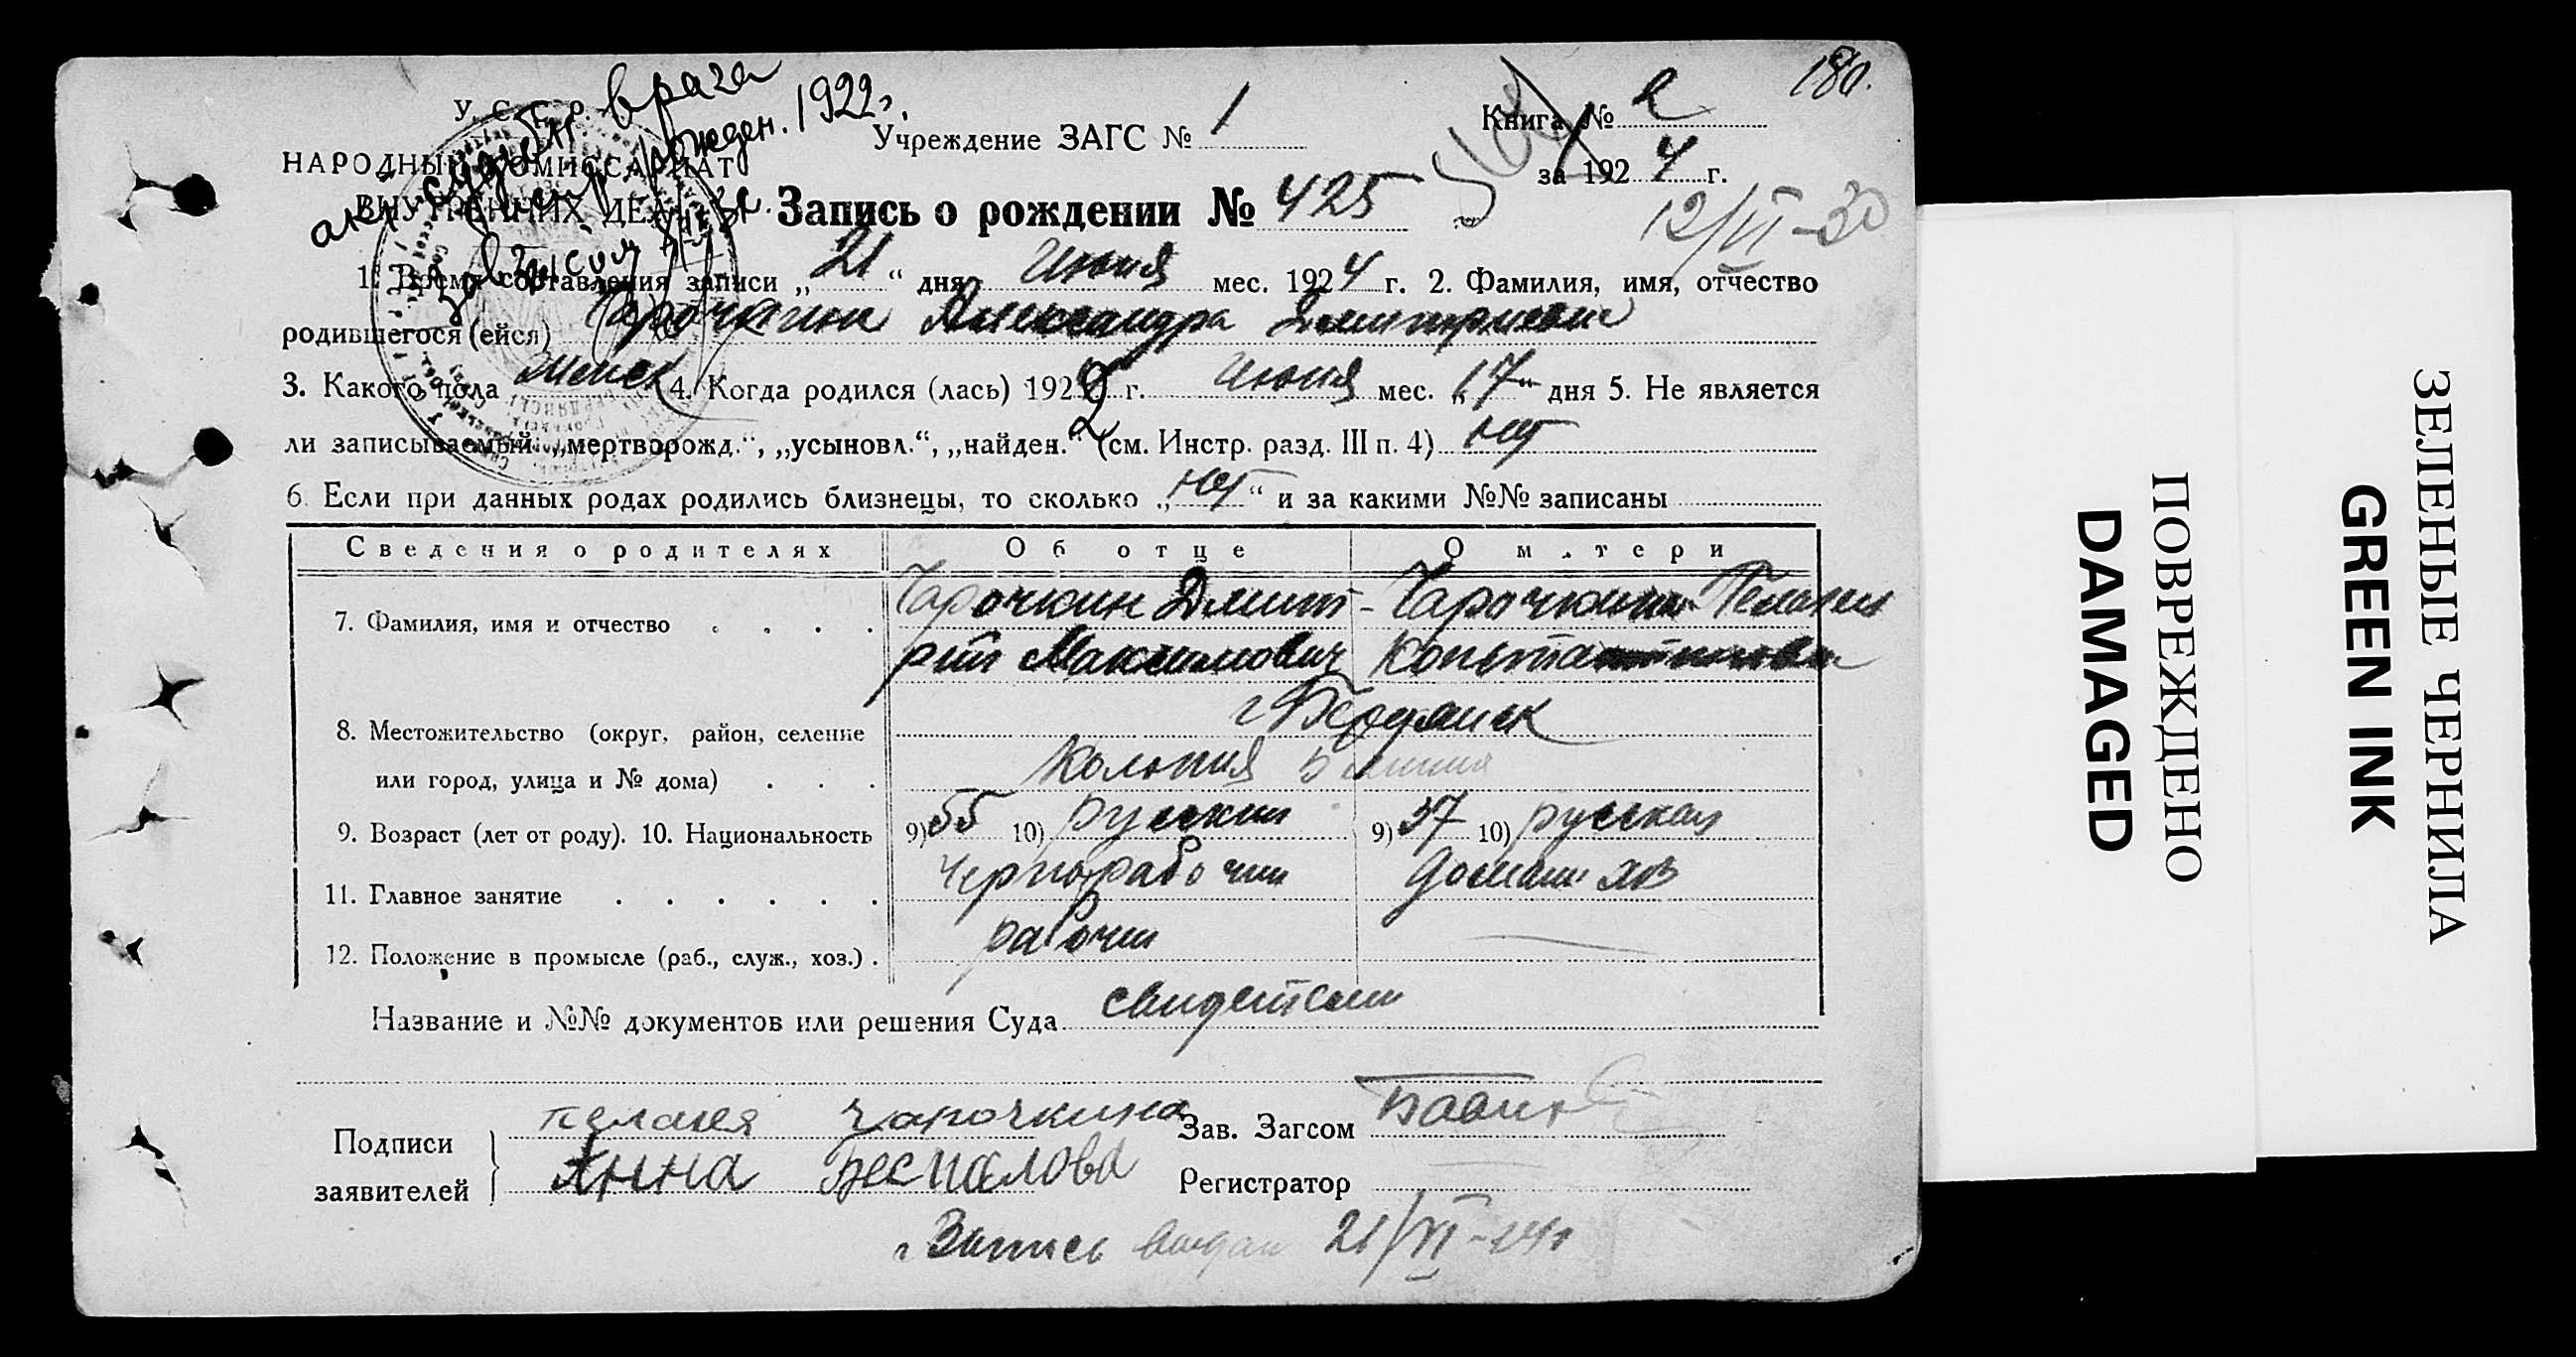 180.
У. С. С. Р.
врача
рожден. 1922 г.
Учреждение ЗАГС № 1
Книга № 2
НАРОДНЫЙ КОМИССАРИАТ
за 1924 г.
ВНУТРЕННИХ ДЕЛ
Запись о рождении № 425
12/VI-30
1. Время составления записи „21“ дня июня мес. 1924 г. 2. Фамилия, имя, отчество
родившегося (ейся) Чарочкина Александра Дмитриевна
3. Какого пола женск 4. Когда родился (лась) 192 г. июня мес. „17“ дня 5. Не является
2
ли записываемый: „мертворожд.“, „усыновл.“, „найден.“ (см. Инстр. разд. III п. 4) нет
6. Если при данных родах родились близнецы, то сколько „нет“ и за какими №№ записаны
Сведения о родителях Об отце О матери
7. Фамилия, имя и отчество . . . . Чарочкин Дмит- Чарочкина Пелагея
рий Максимович Константиновна
8. Местожительство (округ, район, селение г Бердянск
или город, улица и № дома) . . . Колония
9. Возраст (лет от роду). 10. Национальность 9) 55 10) русский 9) 37 10) русская
11. Главное занятие . . . . . . Чернорабочий домашн хоз
12. Положение в промысле (раб., служ., хоз.) . рабочий —
Название и №№ документов или решения Суда свидетели
Подписи заявителей
пелагея Чарочкина
Зав. Загсом
Анна Беспалова
Регистратор
Запись 21/VI-24г
ПОВРЕЖДЕНО
DAMAGED
ЗЕЛЕНЫЕ ЧЕРНИЛА
GREEN INK